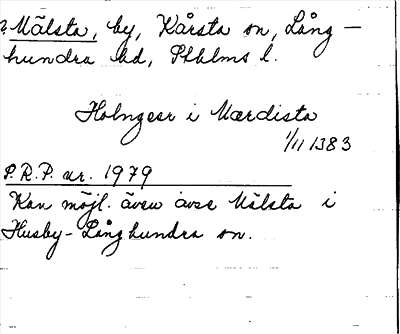 ? Mälsta, by, Kårsta sn, Lång-
hundra hd, Sthlms l.
Holngeer i Mærdista
1/11 1383
P.R.P. nr. 1979
Kan möjl. även avse Mälsta i
Husby-Långhundra sn.